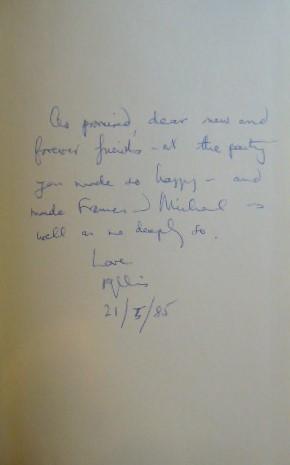 As promised, dear new and
forever friends - at the party
you made so happy - and
made Frances & Michael as
well as me deeply so.
Love
21/5/85